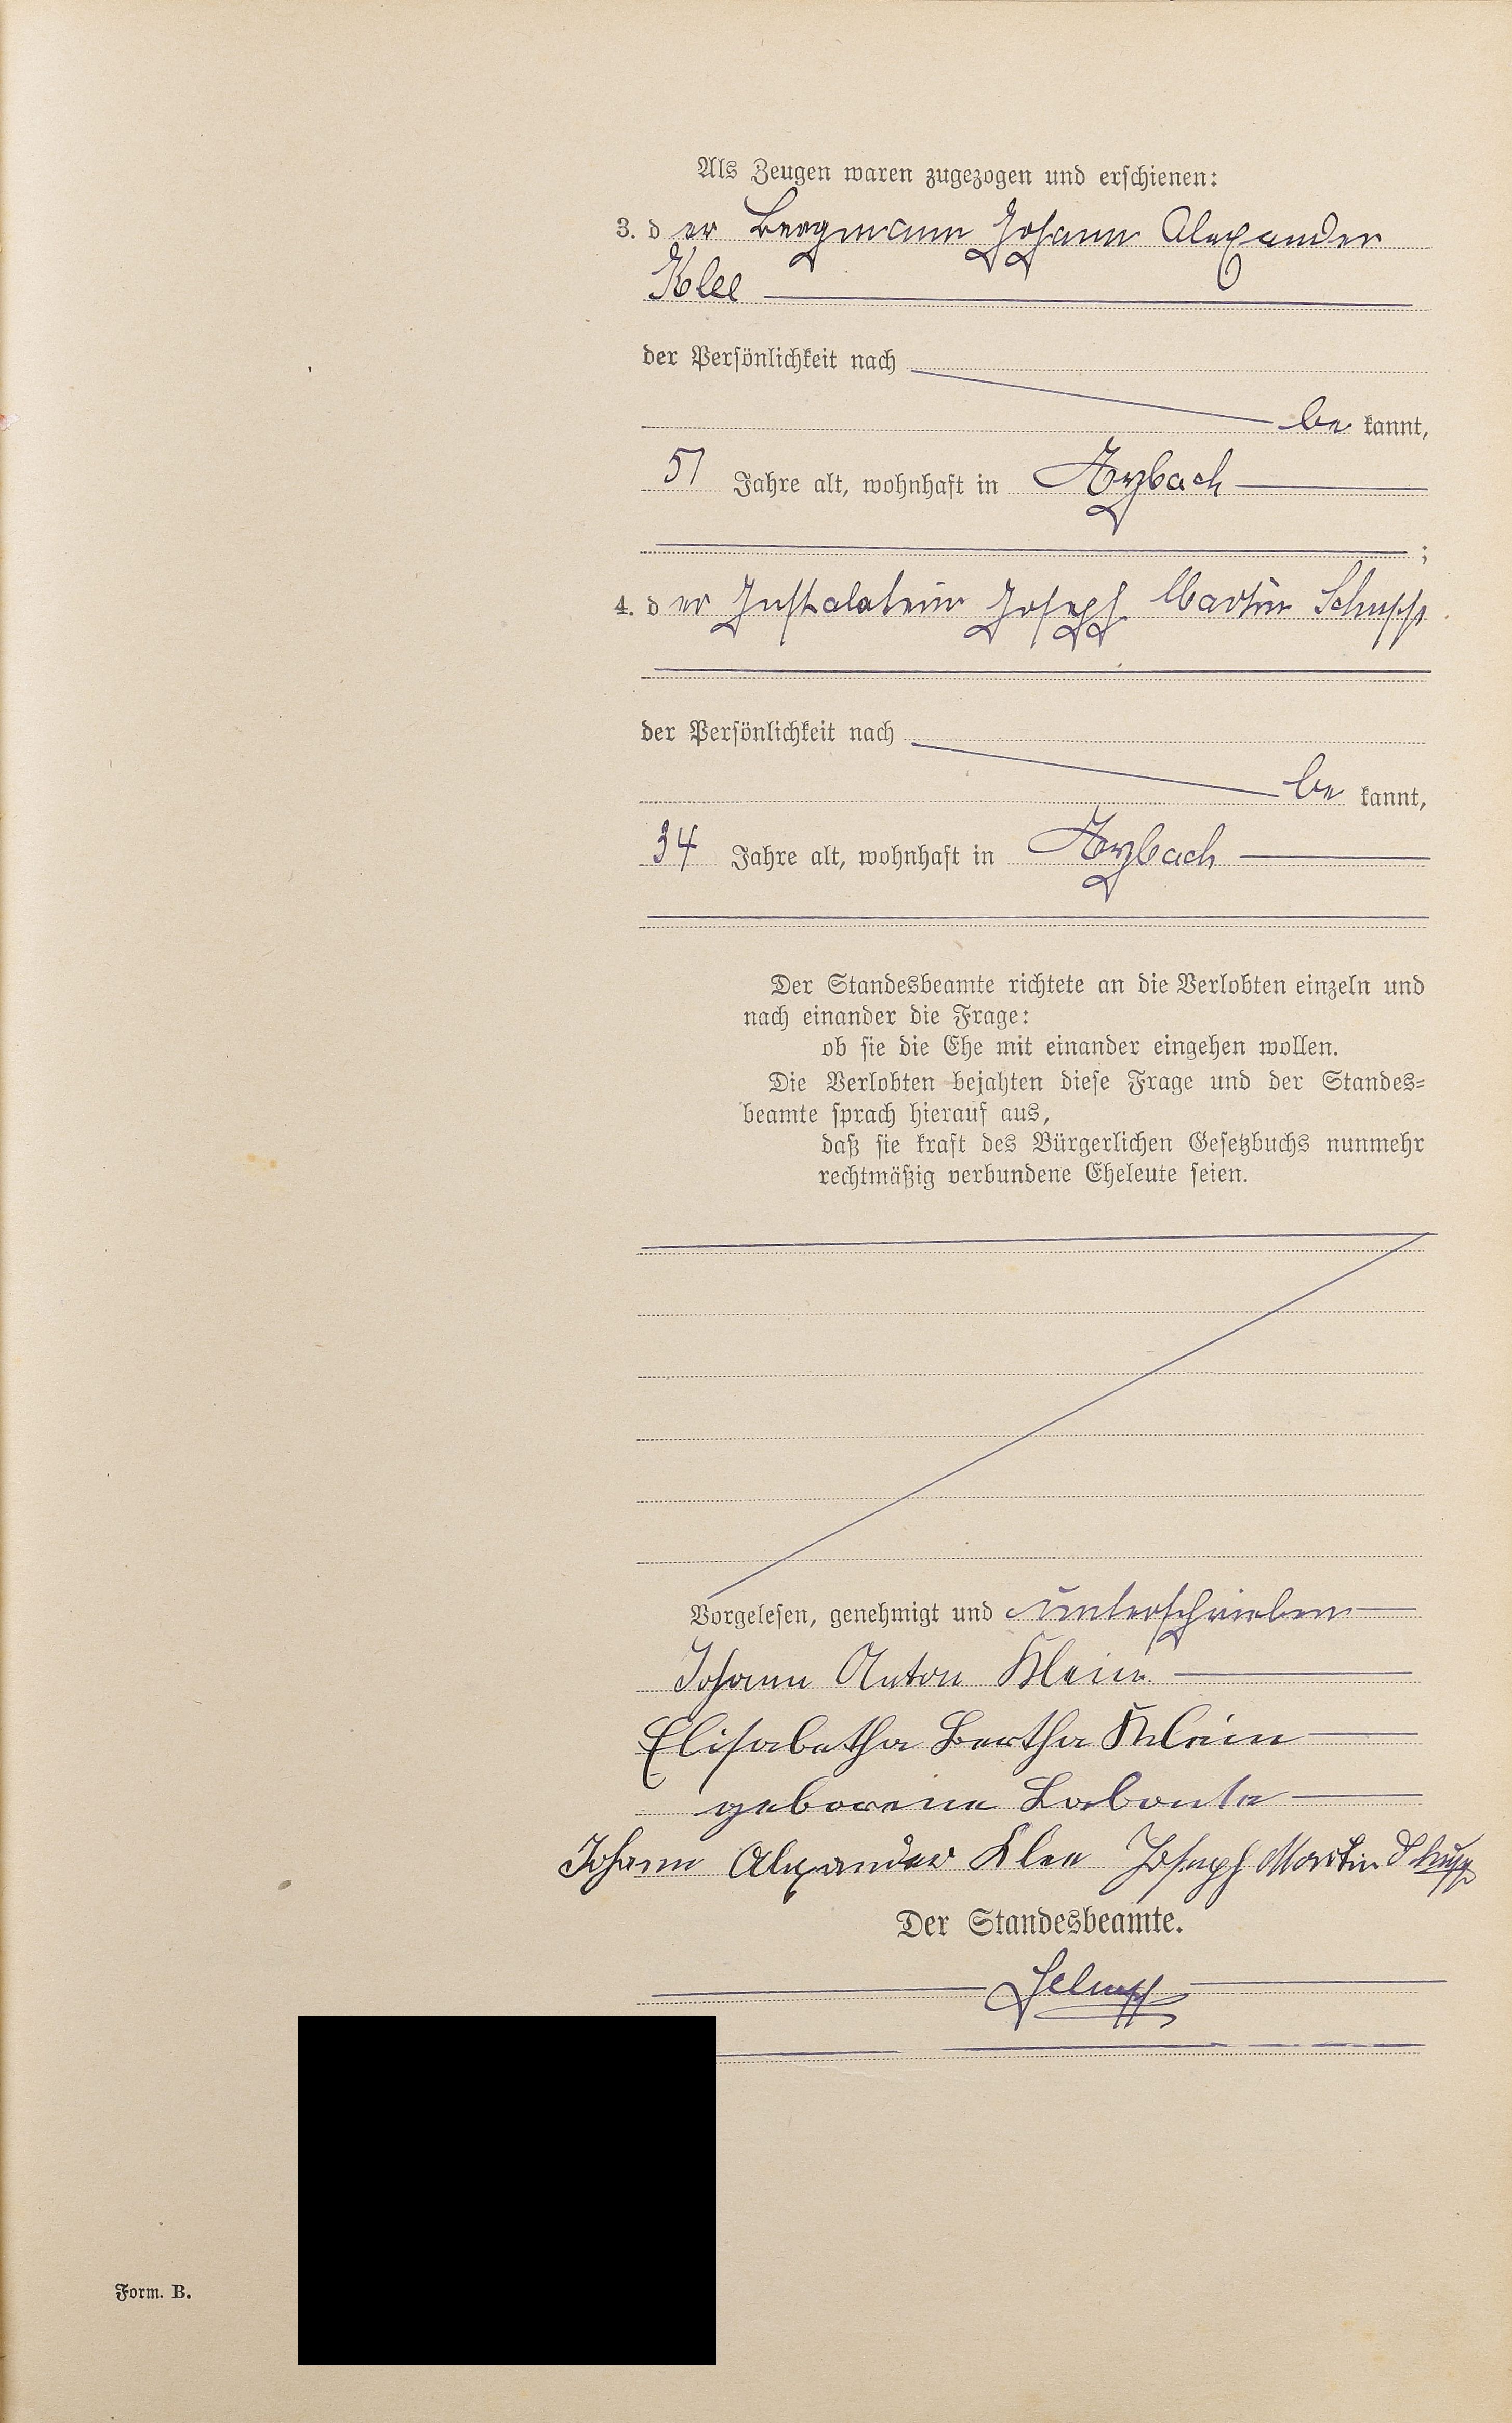 Als Zeugen waren zugezogen und erschienen:
3. der Bergmann Johann Alexander
Klee
der Persönlichkeit nach
bekannt,
51 Jahre alt, wohnhaft in Aybach
;
4. der Joseph Martin Schupp
der Persönlichkeit nach
bekannt,
34 Jahre alt, wohnhaft in Aybach
Der Standesbeamte richtete an die Verlobten einzeln und
nach einander die Frage:
ob sie die Ehe mit einander eingehen wollen.
Die Verlobten bejahten diese Frage und der Standes-
beamte sprach hierauf aus,
daß sie kraft des Bürgerlichen Gesetzbuchs nunmehr
rechtmäßig verbundene Eheleute seien.
Vorgelesen, genehmigt und unterschrieben
Johann Anton Klein
Elisabetha Bertha Klein
geborene Labonte
Johann Alexander Klee Joseph Martin Schupp
Der Standesbeamte.
Form. B.